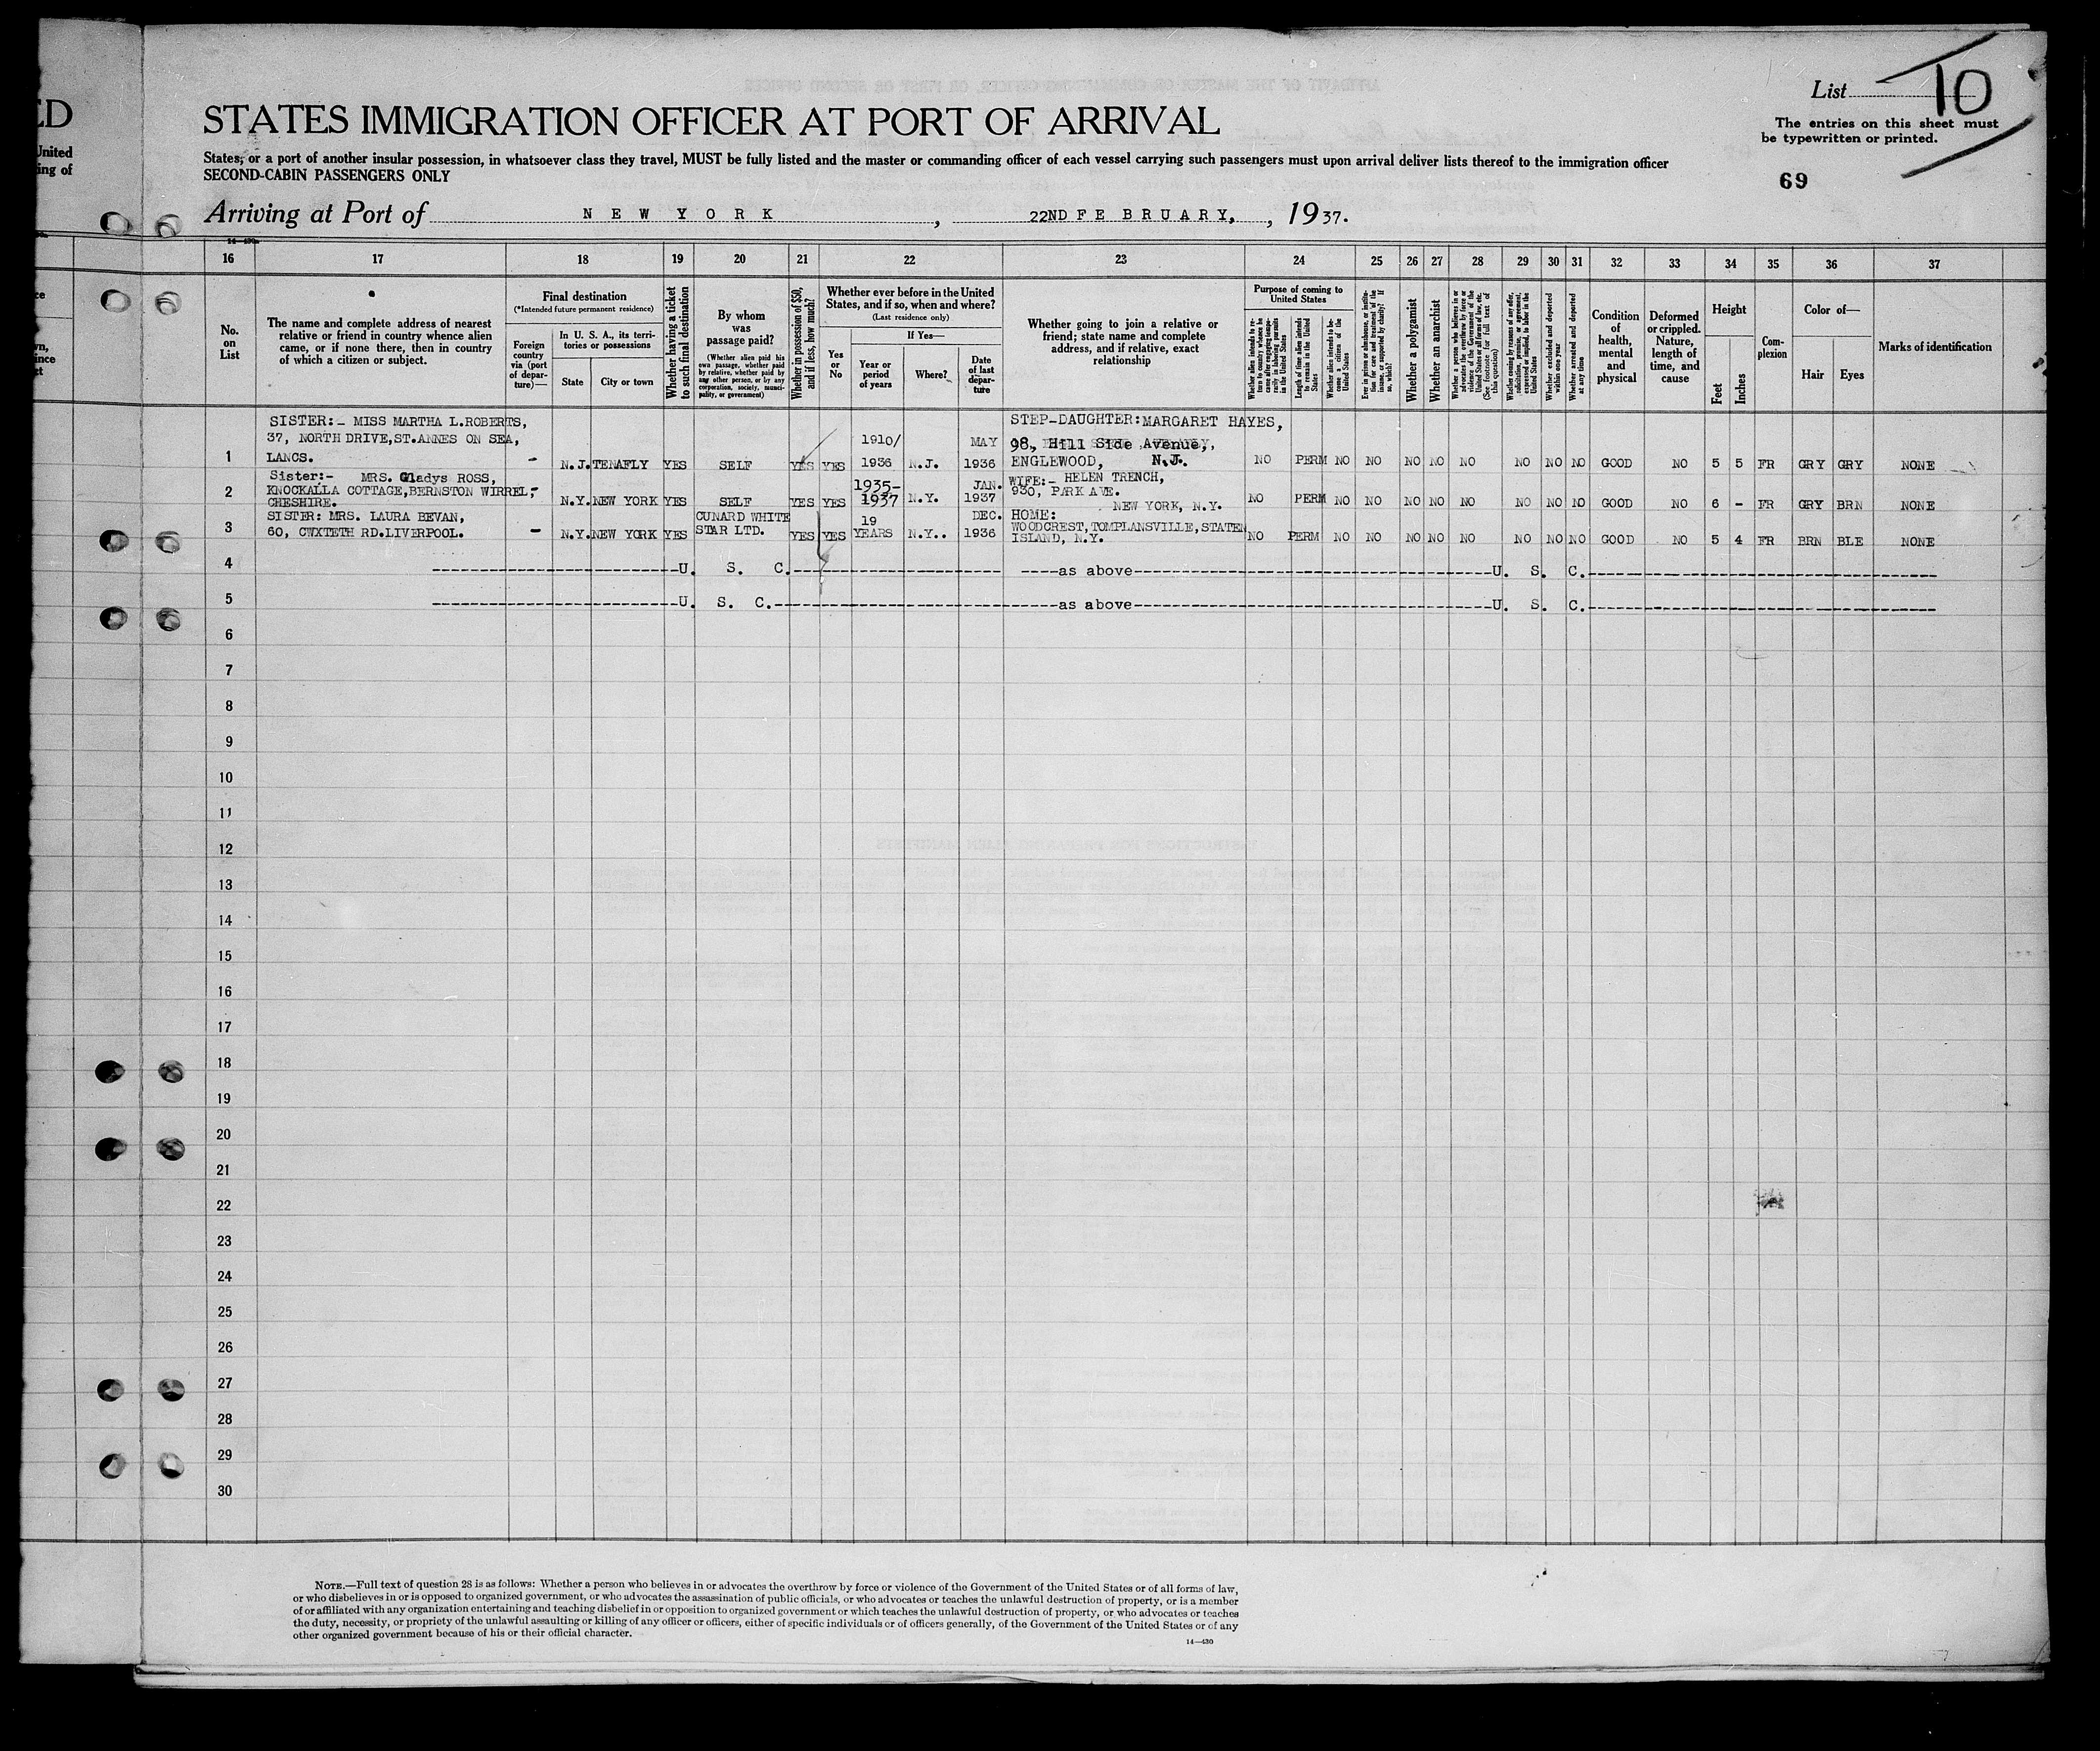 ED
United
ing of
List 10
The entries on this sheet must
be typewritten or printed.
STATES IMMIGRATION OFFICER AT PORT OF ARRIVAL
States, or a port of another insular possession, in whatsoever class they travel, MUST be fully listed and the master or commanding officer of each vessel carrying such passengers must upon arrival deliver lists thereof to the immigration officer
SECOND-CABIN PASSENGERS ONLY
69
Arriving at Port of NEW YORK, 22ND FEBRUARY, , 1937.
16 17 18 19 20 21 22 23 24 25 26 27 28 29 30 31 32 33 34 35 36 37
No. on List
The name and complete address of nearest relative or friend in country whence alien came, or if none there, then in country of which a citizen or subject.
Final destination
(*Intended future permanent residence)
Foreign country via (port of departure)—
In U. S. A., its territories or possessions
State
City or town
Whether having a ticket to such final destination
By whom was passage paid?
(Whether alien paid his own passage, whether paid by relative, whether paid by any other person, or by any corporation, society, municipality, or government)
Whether in possession of $50, and if less, how much?
Whether ever before in the United States, and if so, when and where?
(Last residence only)
Yes or No
If Yes—
Year or period of years
Where?
Date of last departure
Whether going to join a relative or friend; state name and complete address, and if relative, exact relationship
Purpose of coming to United States
Whether alien intends to return to country whence he came after engaging temporarily in laboring pursuits in the United States
Length of time alien intends to remain in the United States
Whether alien intends to become a citizen of the United States
Ever in prison or almshouse, or institution for care and treatment of the insane, or supported by charity? If so, which?
Whether a polygamist
Whether an anarchist
Whether a person who believes in or advocates the overthrow by force or violence of the Government of the United States or all forms of law, etc. (See footnote for full text of this question)
Whether coming by reasons of any offer, solicitation, promise, or agreement, expressed or implied, to labor in the United States
Whether excluded and deported within one year
Whether arrested and deported at any time
Condition of health, mental and physical
Deformed or crippled. Nature, length of time, and cause
Height
Feet
Inches
Complexion
Color of—
Hair
Eyes
Marks of identification
1 SISTER:- MISS MARTHA L.ROBERTS, 37, NORTH DRIVE,ST.ANNES ON SEA, LANCS. - N.J. TENAFLY YES SELF YES YES 1910/ 1936 N.J. MAY 1936 STEP-DAUGHTER: MARGARET HAYES, 98, Hill Side Avenue, ENGLEWOOD, N.J. NO PERM NO NO NO NO NO NO NO NO GOOD NO 5 5 FR GRY GRY NONE
2 Sister:- MRS. Gladys ROSS, KNOCKALLA COTTAGE,BERNSTON WIRREL, CHESHIRE. - N.Y. NEW YORK YES SELF YES YES 1935- 1937 N.Y. JAN. 1937 WIFE:- HELEN TRENCH, 930, PARK AVE. NEW YORK, N.Y. NO PERM NO NO NO NO NO NO NO NO GOOD NO 6 - FR GRY BRN NONE
3 SISTER: MRS. LAURA BEVAN, 60, CWXTETH RD.LIVERPOOL. - N.Y. NEW YORK YES CUNARD WHITE STAR LTD. YES YES 19 YEARS N.Y.. DEC. 1936 HOME: WOODCREST,TOMPLANSVILLE,STATEN ISLAND, N.Y. NO PERM NO NO NO NO NO NO NO NO GOOD NO 5 4 FR BRN BLE NONE
4 U. S. C. as above U. S. C.
5 U. S. C. as above U. S. C.
6
7
8
9
10
11
12
13
14
15
16
17
18
19
20
21
22
23
24
25
26
27
28
29
30
NOTE.—Full text of question 28 is as follows: Whether a person who believes in or advocates the overthrow by force or violence of the Government of the United States or of all forms of law,
or who disbelieves in or is opposed to organized government, or who advocates the assassination of public officials, or who advocates or teaches the unlawful destruction of property, or is a member
of or affiliated with any organization entertaining and teaching disbelief in or opposition to organized government or which teaches the unlawful destruction of property, or who advocates or teaches
the duty, necessity, or propriety of the unlawful assaulting or killing of any officer or officers, either of specific individuals or of officers generally, of the Government of the United States or of any
other organized government because of his or their official character.
14—430